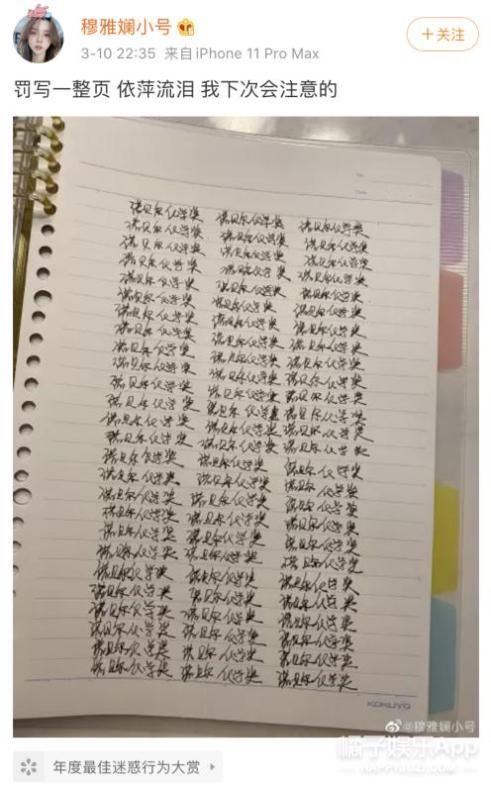 穆雅斓小号
3-10 22:35 来自 iPhone 11 Pro Max
+关注
罚写一整页 依萍流泪 我下次会注意的
诺贝尔化学奖 诺贝尔化学奖 诺贝尔化学奖
诺贝尔化学奖 诺贝尔化学奖 诺贝尔化学奖
诺贝尔化学奖 诺贝尔化学奖 诺贝尔化学奖
诺贝尔化学奖 诺贝尔化学奖 诺贝尔化学奖
诺贝尔化学奖 诺贝尔化学奖 诺贝尔化学奖
诺贝尔化学奖 诺贝尔化学奖 诺贝尔化学奖
诺贝尔化学奖 诺贝尔化学奖 诺贝尔化学奖
诺贝尔化学奖 诺贝尔化学奖 诺贝尔化学奖
诺贝尔化学奖 诺贝尔化学奖 诺贝尔化学奖
诺贝尔化学奖 诺贝尔化学奖 诺贝尔化学奖
诺贝尔化学奖 诺贝尔化学奖 诺贝尔化学奖
诺贝尔化学奖 诺贝尔化学奖 诺贝尔化学奖
诺贝尔化学奖 诺贝尔化学奖 诺贝尔化学奖
诺贝尔化学奖 诺贝尔化学奖 诺贝尔化学奖
诺贝尔化学奖 诺贝尔化学奖 诺贝尔化学奖
诺贝尔化学奖 诺贝尔化学奖 诺贝尔化学奖
诺贝尔化学奖 诺贝尔化学奖 诺贝尔化学奖
诺贝尔化学奖 诺贝尔化学奖 诺贝尔化学奖
诺贝尔化学奖 诺贝尔化学奖 诺贝尔化学奖
诺贝尔化学奖 诺贝尔化学奖 诺贝尔化学奖
诺贝尔化学奖 诺贝尔化学奖 诺贝尔化学奖
诺贝尔化学奖 诺贝尔化学奖 诺贝尔化学奖
诺贝尔化学奖 诺贝尔化学奖 诺贝尔化学奖
诺贝尔化学奖 诺贝尔化学奖 诺贝尔化学奖
诺贝尔化学奖 诺贝尔化学奖 诺贝尔化学奖
诺贝尔化学奖 诺贝尔化学奖 诺贝尔化学奖
KOKUYO
@穆雅斓小号
橘子娱乐App
HAPPYJUZI.COM
年度最佳迷惑行为大赏